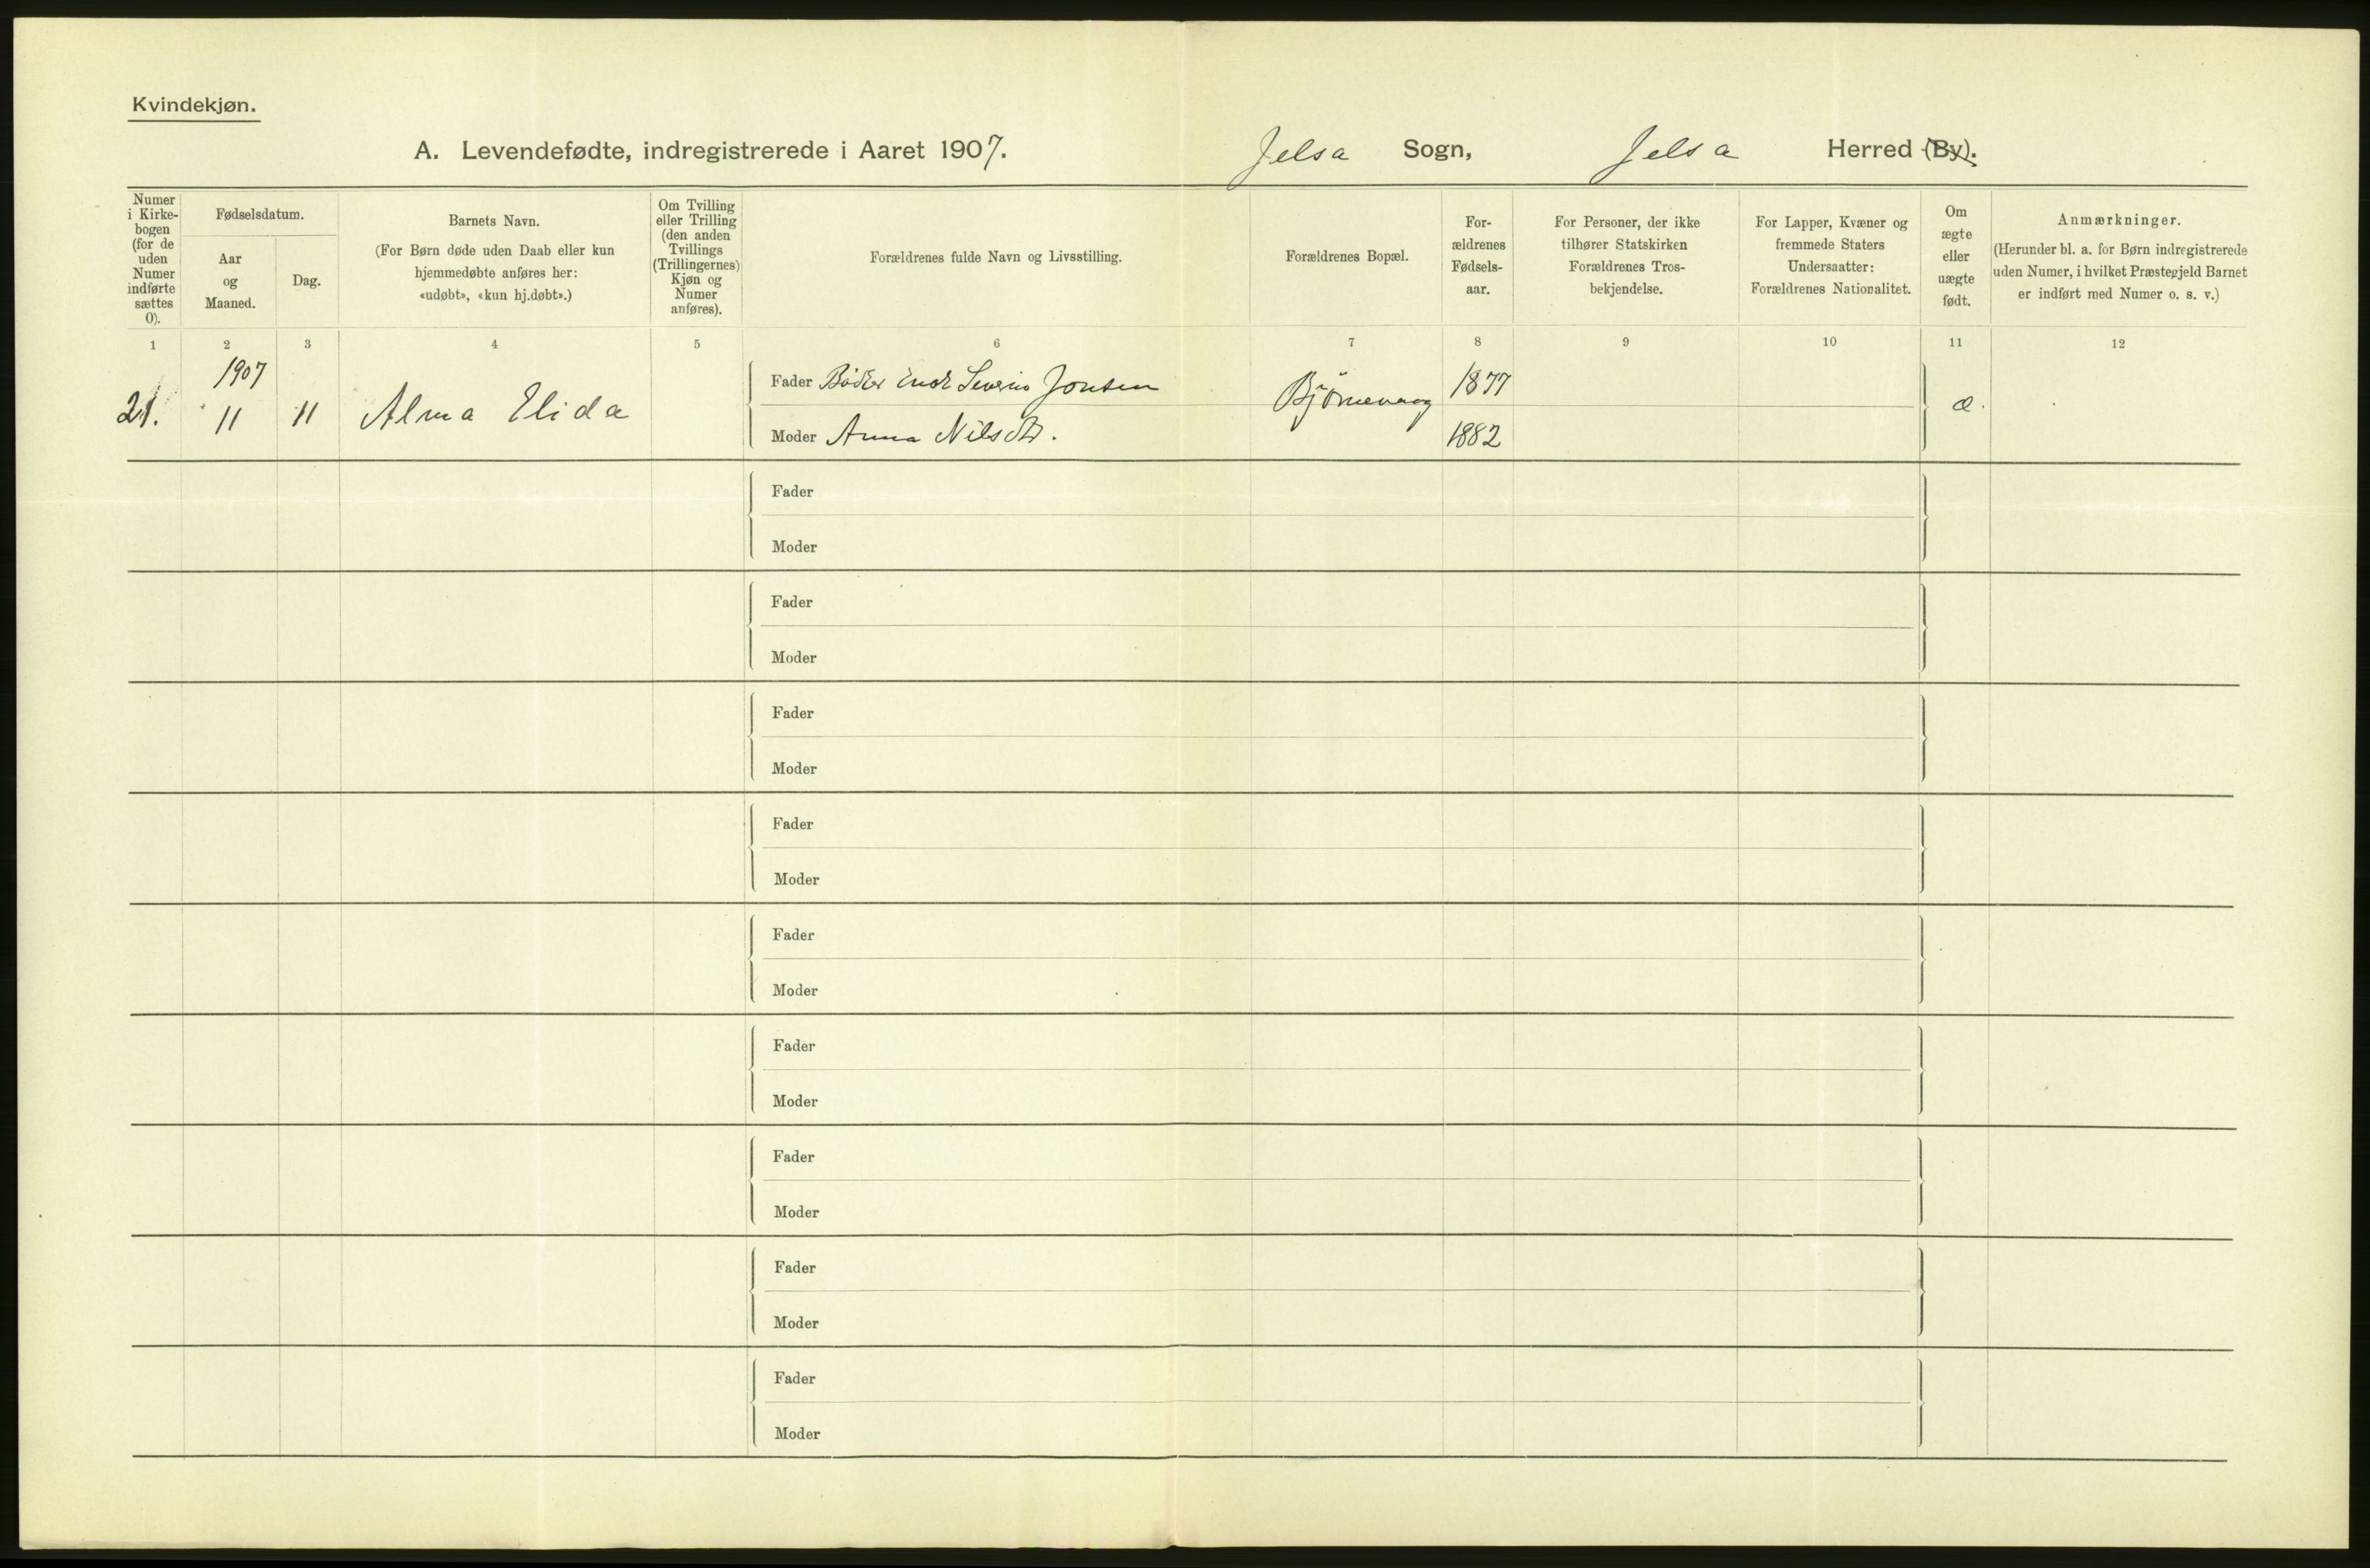 Kvindekjøn.
A. Levendefødte, indregistrerede i Aaret 1907. Jelsa Sogn, Jelsa Herred (By).
Numer
i Kirke-
bogen
(for de
uden
Numer
indførte
sættes
O).
Fødselsdatum.
Aar
og
Maaned.
Dag.
Barnets Navn.
(For Børn døde uden Daab eller kun
hjemmedøbte anføres her:
«udøbt», «kun hj.døbt».)
Om Tvilling
eller Trilling
(den anden
Tvillings
(Trillingernes)
Kjøn og
Numer
anføres).
Forældrenes fulde Navn og Livsstilling.
Forældrenes Bopæl.
For-
ældrenes
Fødsels-
aar.
For Personer, der ikke
tilhører Statskirken
Forældrenes Tros-
bekjendelse.
For Lapper, Kvæner og
fremmede Staters
Undersaatter:
Forældrenes Nationalitet.
Om
ægte
eller
uægte
født.
Anmærkninger.
(Herunder bl. a. for Børn indregistrerede
uden Numer, i hvilket Præstegjeld Barnet
er indført med Numer o. s. v.)
1 2 3 4 5 6 7 8 9 10 11 12
1907
21. 11 11 Alma Elida
Fader Bödker Endr Severin Jonsen
Bjørnevaag
1877
æ.
Moder Anna Nilsdtr.
1882
Fader
Moder
Fader
Moder
Fader
Moder
Fader
Moder
Fader
Moder
Fader
Moder
Fader
Moder
Fader
Moder
Fader
Moder